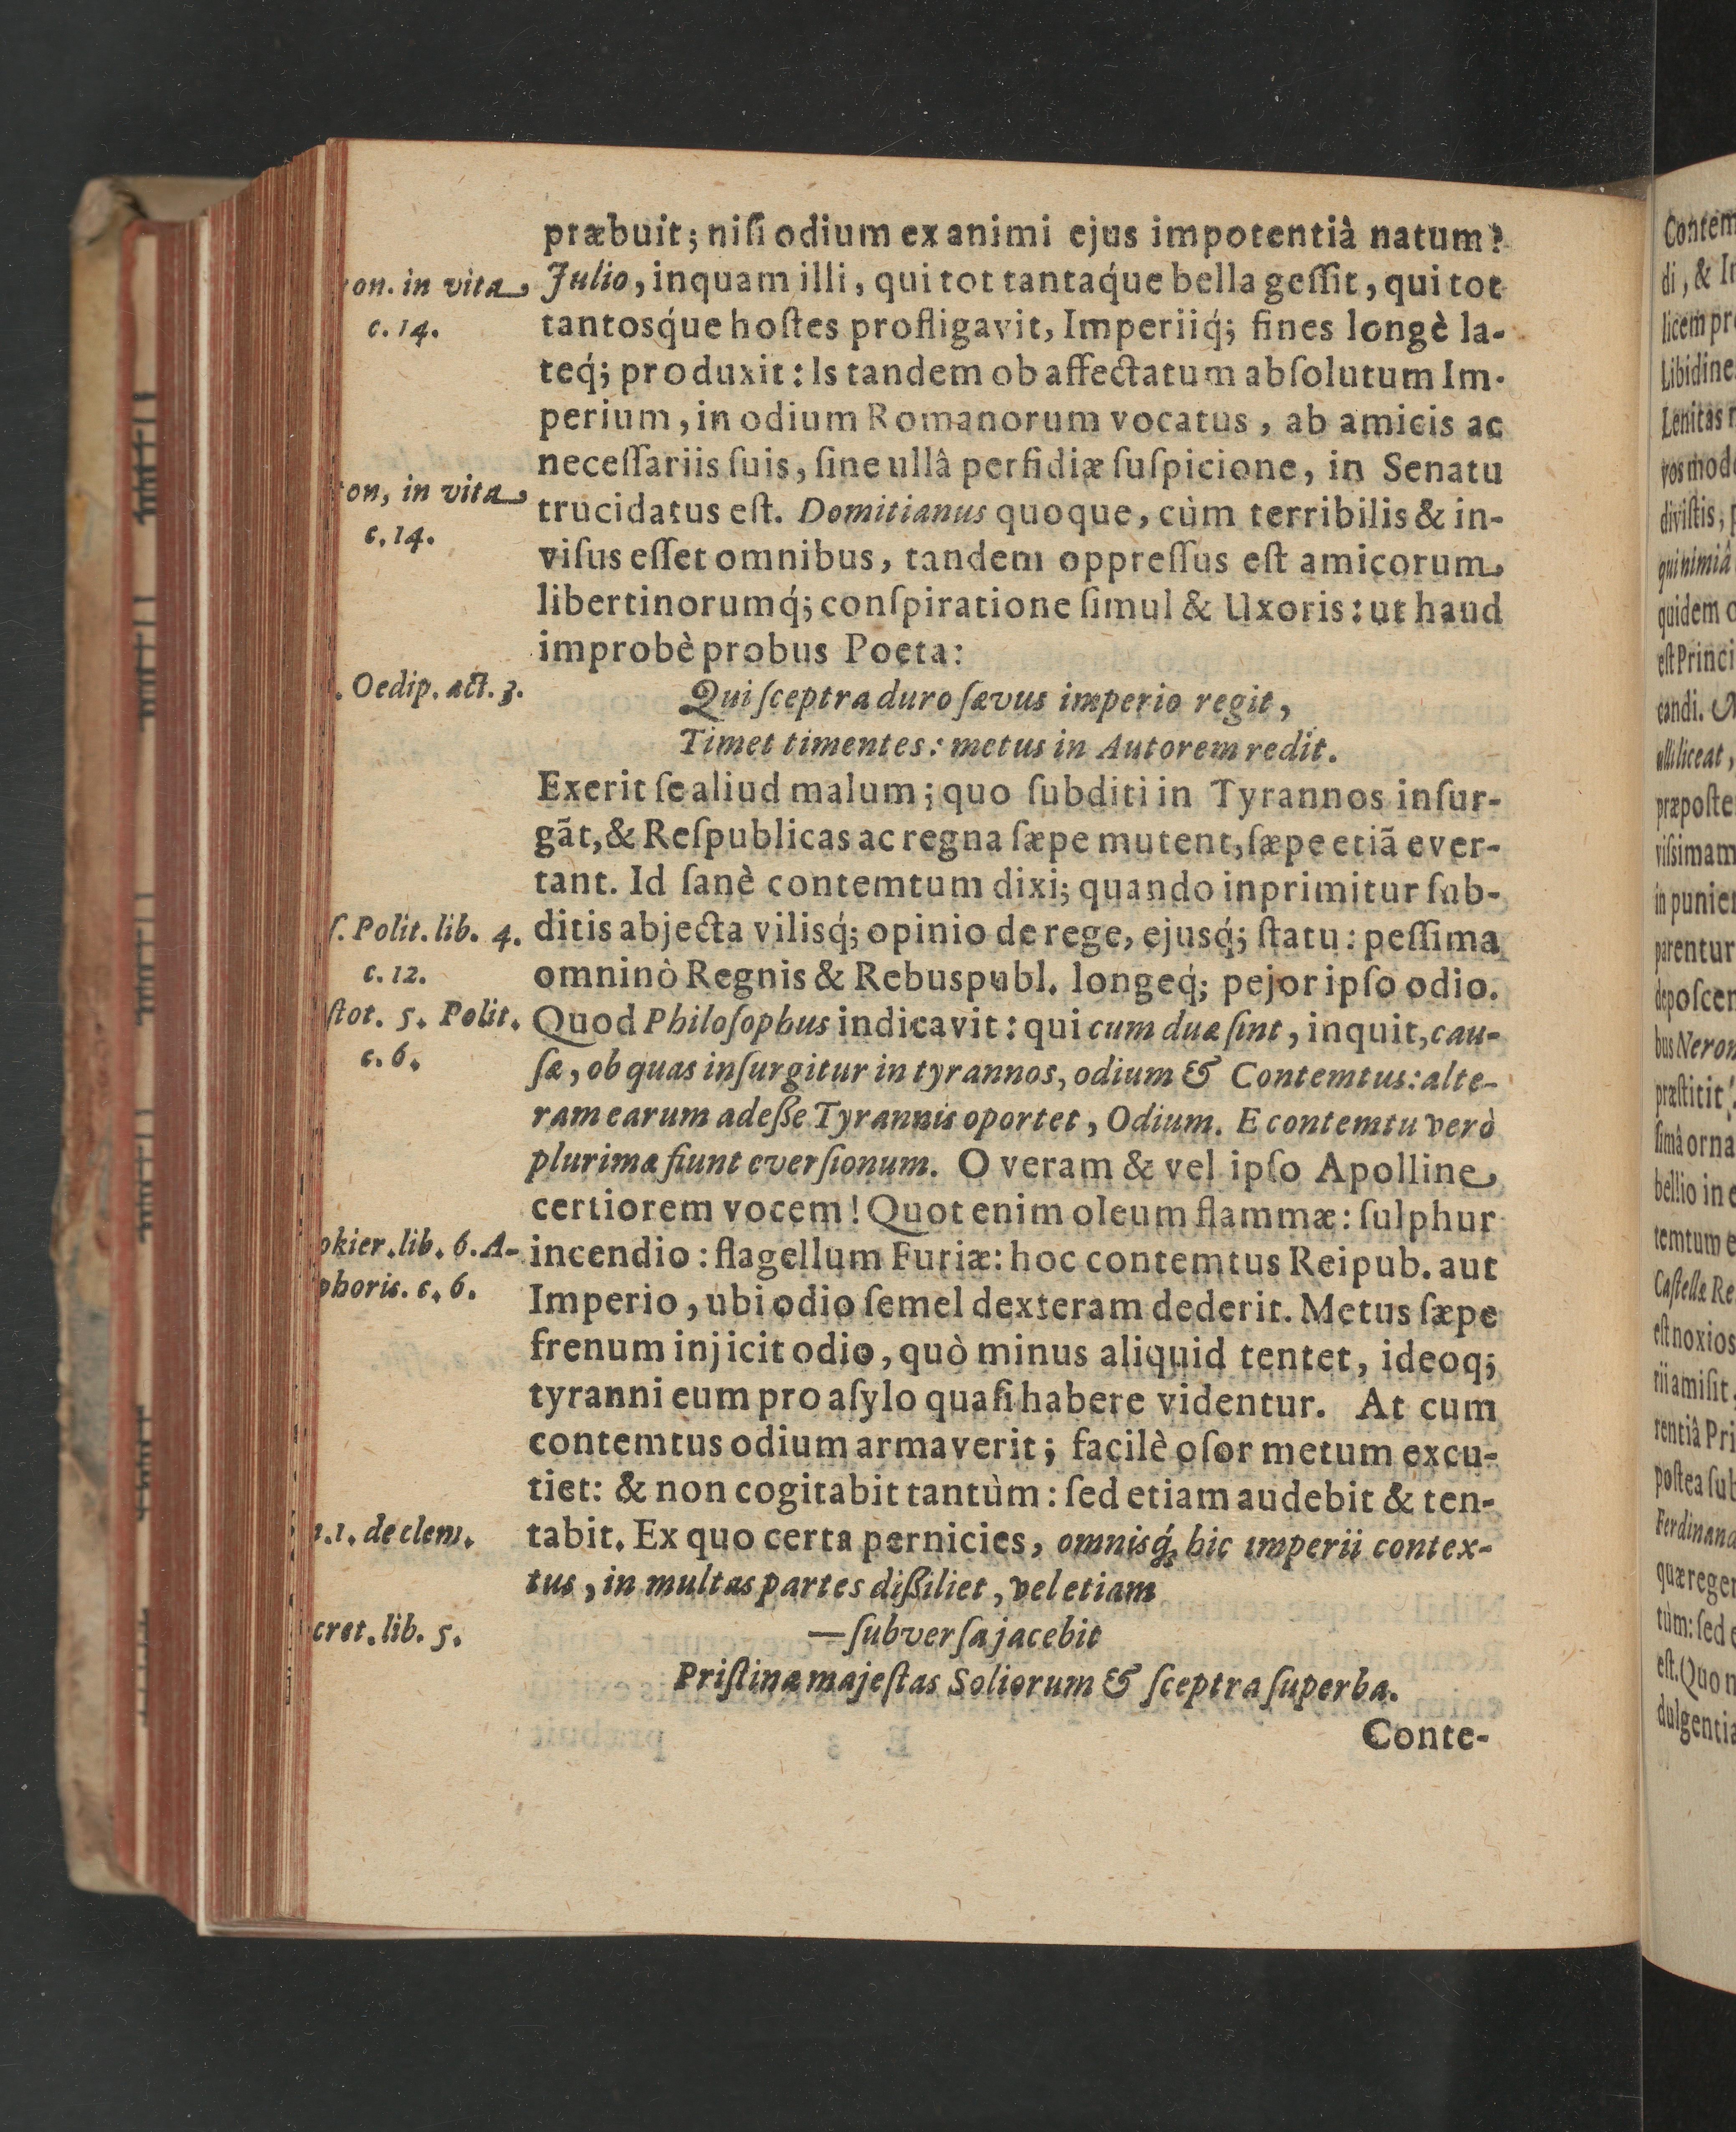 præbuit; niſi odium ex animi ejus impotentiâ natum?
on. in vita
c. 14.
Julio, inquam illi, qui tot tantaq́ue bella geſſit, qui tot
tantosq́ue hoſtes profligavit, Imperiiq́; fines longè la-
teq́; produxit: Is tandem ob affectatum abſolutum Im-
perium, in odium Romanorum vocatus, ab amicis ac
neceſſariis ſuis, ſine ullâ perfidiæ ſuſpicione, in Senatu
on, in vita
c. 14.
trucidatus eſt. Domitianus quoque, cùm terribilis & in-
viſus eſſet omnibus, tandem oppreſſus eſt amicorum
libertinorumq́; conſpiratione ſimul & Uxoris: ut haud
improbè probus Poeta:
. Oedip. act. 3.
Qui ſceptra duro ſævus imperio regit,
Timet timentes: metus in Autorem redit.
Exerit ſe aliud malum; quo ſubditi in Tyrannos inſur-
gãt, & Reſpublicas ac regna ſæpe mutent, ſæpe etiã ever-
tant. Id ſanè contemtum dixi; quando inprimitur ſub-
ſ. Polit. lib. 4.
c. 12.
ditis abjecta vilisq́; opinio de rege, ejusq́; ſtatu: peſſima
omninò Regnis & Rebuspubl. longeq́; pejor ipſo odio.
ſtot. 5. Polit.
c. 6.
Quod Philoſophus indicavit: qui cum duæ ſint, inquit, cau-
ſæ, ob quas inſurgitur in tyrannos, odium & Contemtus: alte-
ram earum adeſſe Tyrannis oportet, Odium. E contemtu verò
plurimæ fiunt everſionum. O veram & vel ipſo Apolline
certiorem vocem! Quot enim oleum flammæ: ſulphur
okier. lib. 6. A-
phoris. c. 6.
incendio: flagellum Furiæ: hoc contemtus Reipub. aut
Imperio, ubi odio ſemel dexteram dederit. Metus ſæpe
frenum injicit odio, quò minus aliquid tentet, ideoq;
tyranni eum pro aſylo quaſi habere videntur. At cum
contemtus odium armaverit; facilè oſor metum excu-
tiet: & non cogitabit tantùm: ſed etiam audebit & ten-
.1. de clem.
tabit. Ex quo certa pernicies, omnisq́; hic imperii contex-
tus, in multas partes diſſiliet, vel etiam
cret. lib. 5.
—ſubverſa jacebit
Priſtina majeſtas Soliorum & ſceptra ſuperba.
Conte-
Contem
di, & I
licem pr
Libidine
Lenitas
vos mod
diviſtis,
qui nimiâ
quidem
eſt Princi
candi.
ulli liceat,
præpoſte
viſsimam
in punie
parentur
depoſcer
bus Neron
præſtitit
ſimâ orna
bellio in
temtum
Caſtellæ Re
eſt noxios
rii amiſit
rentiâ Pri
poſtea ſub
Ferdinand
quæ reger
tùm: ſed
eſt. Quo
dulgentia